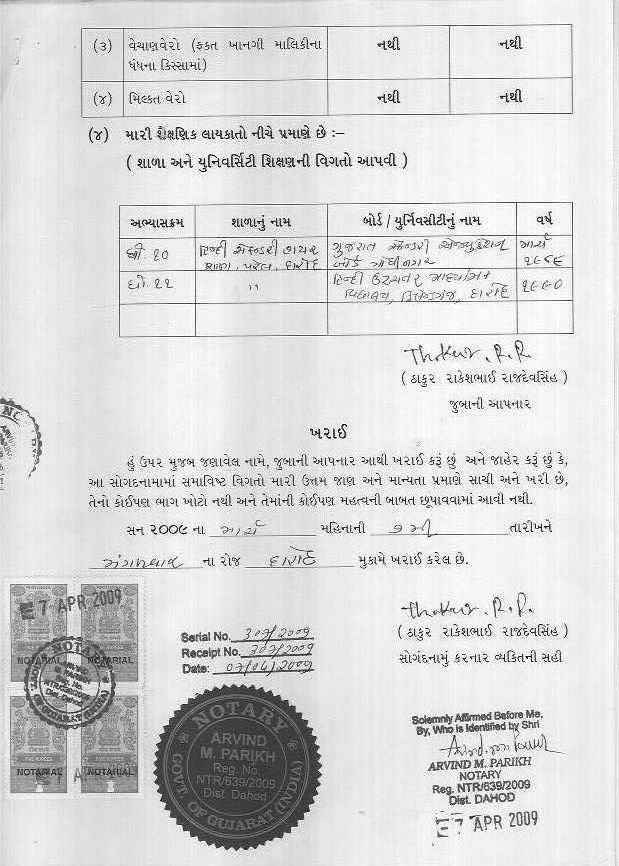 (૩) વેચાણવેરો (ફકત ખાનગી માલિકીના નથી નથી
ધંધના કિસ્સામાં)
(૪) મિલ્કત વેરો નથી નથી
(૪) મારી શૈક્ષણિક લાયકાતો નીચે પ્રમાણે છે :–
( શાળા અને યુનિવર્સિટી શિક્ષણની વિગતો આપવી )
અભ્યાસક્રમ શાળાનું નામ બોર્ડ / યુર્નિવસીટીનું નામ વર્ષ
ધો. ૧૦ હિન્દી સેકન્ડરી ગુજરાત સેકન્ડરી એજ્યુકેશન માર્ચ
શાળા, પરેલ, દાહોદ બોર્ડ ગાંધીનગર
ધો. ૧૨ '' હિન્દી ઉચ્ચતર માધ્યમિક ૧૯૯૦
વિદ્યાલય, દાહોદ
Thakur. R.R.
( ઠાકુર રાકેશભાઈ રાજદેવસિંહ )
જુબાની આપનાર
ખરાઈ
હું ઉપર મુજબ જણાવેલ નામે, જુબાની આપનાર આથી ખરાઈ કરૂં છું અને જાહેર કરૂં છું કે,
આ સોગદનામામાં સમાવિષ્ટ વિગતો મારી ઉત્તમ જાણ અને માન્યતા પ્રમાણે સાચી અને ખરી છે,
તેનો કોઈપણ ભાગ ખોટો નથી અને તેમાંની કોઈપણ મહત્વની બાબત છૂપાવવામાં આવી નથી.
સન ૨૦૦૯ ના માર્ચ મહિનાની ૭ મી તારીખને
મંગળવાર ના રોજ દાહોદ મુકામે ખરાઈ કરેલ છે.
Thakur. R.R.
( ઠાકુર રાકેશભાઈ રાજદેવસિંહ )
સોગંદનામું કરનાર વ્યકિતની સહી
7 APR 2009
NOTARIAL NOTARIAL
NOTARY
GUJARAT (INDIA)
NOTARIAL NOTARIAL
Serial No. 307/2009
Receipt No. 307/2009
Date: 07/04/2009
NOTARY
ARVIND
M. PARIKH
Reg. No.
NTR/639/2009
Dist. Dahod
GOVT. OF GUJARAT (INDIA)
Solemnly Affirmed Before Me,
By, Who is Identified by Shri
ARVIND M. PARIKH
NOTARY
Reg. NTR/639/2009
Dist. DAHOD
7 APR 2009